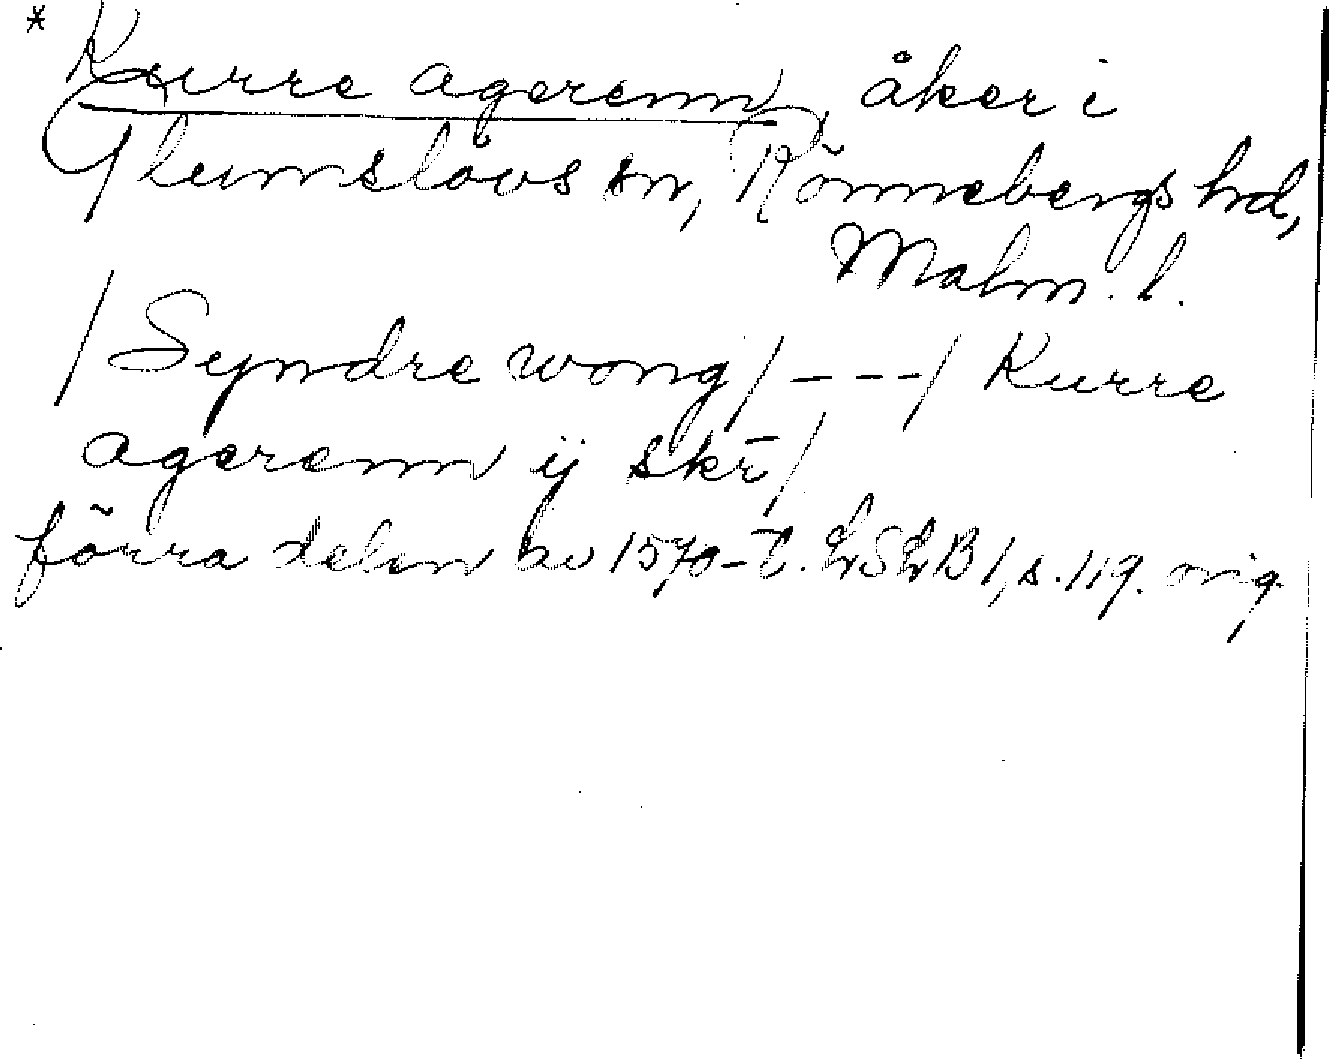 * Kurre agerenn, åker i
Glumslövs sn, Rönnebergs hd,
Malm. l.
/Syndre wong/ - - -/ Kurre
agerenn ij skr̄/
förra delen av 1570-t. LSLB 1, s. 119. orig.